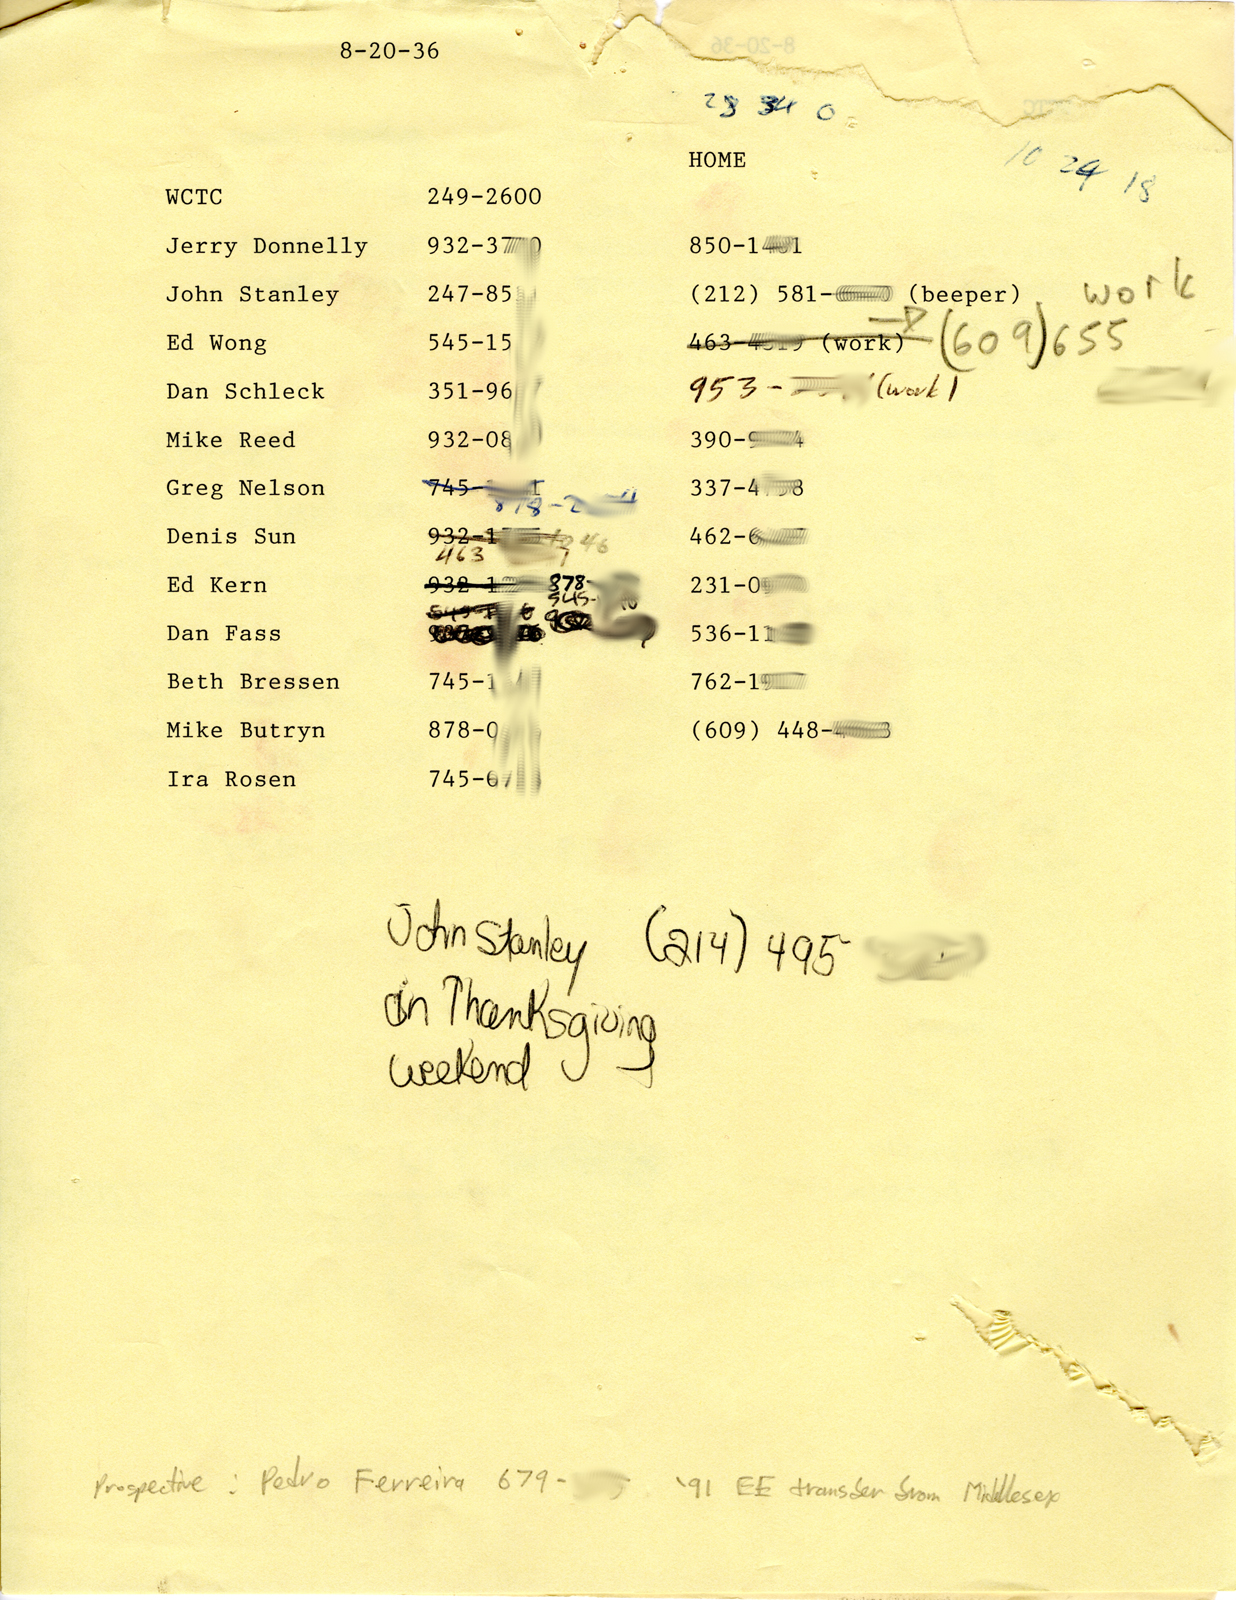 8-20-36
23 34 0
HOME
10 24 18
WCTC 249-2600
Jerry Donnelly 932-37 0 850-14 1
John Stanley 247-85 (212) 581- (beeper) work
Ed Wong 545-15 463-4 (work) (609) 655
Dan Schleck 351-96 953- (work)
Mike Reed 932-08 390- 4
Greg Nelson 745- 337-4 8
878-2
Denis Sun 932-1 46 462-6
463
Ed Kern 932-1 878- 231-0
545-
Dan Fass 536-11
Beth Bressen 745-1 762-19
Mike Butryn 878-0 (609) 448-
Ira Rosen 745-0
John Stanley (214) 495-
on Thanksgiving
weekend
Prospective : Pedro Ferreira 679- '91 EE transfer from Middlesex